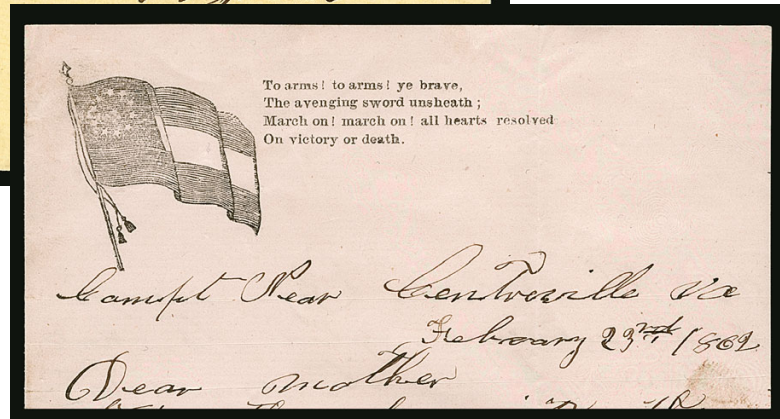 To arms! to arms! ye brave,
The avenging sword unsheath;
March on! march on! all hearts resolved
On victory or death.
Near Centreville Va
February 23rd 1862
Dear Mother